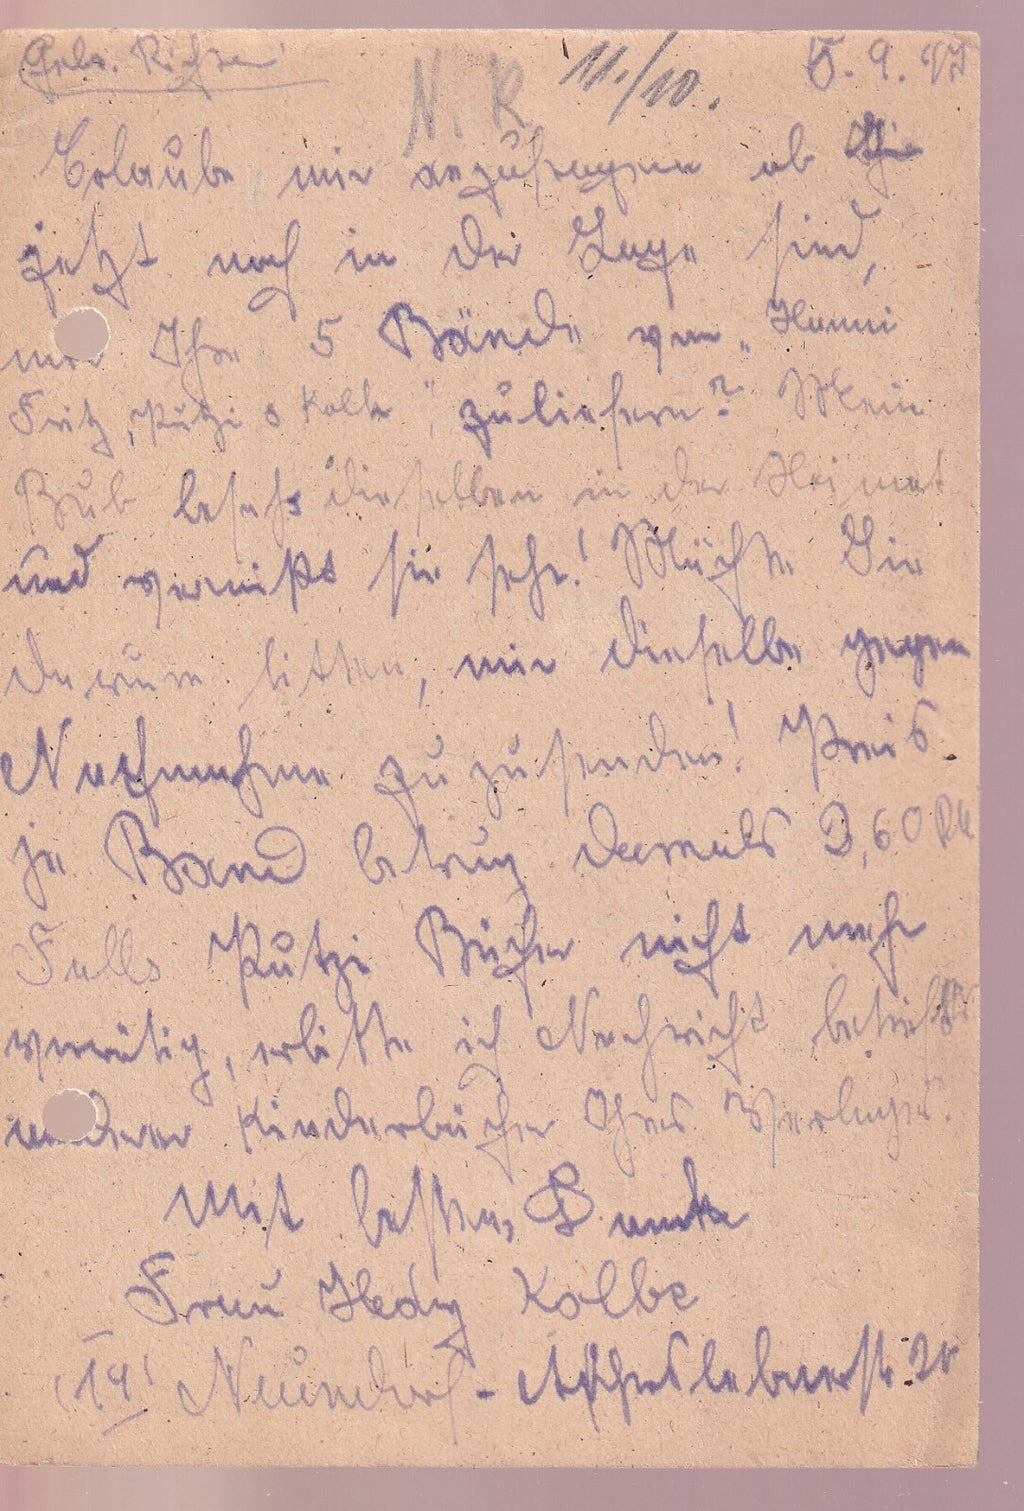 Gebr. Richter N. R 11./10. 5. 9. 47
Erlaube mir anzufragen ob Sie
jetzt noch in der Lage sind,
mir Ihre 5 Bände von „Hanni
Fritz, Putzi u Kolk" zuliefern? Mein
Bub besass dieselben in der Heimat
und vermißt sie sehr! Möchte Sie
darum bitten, mir dieselbe gegen
Nachnahme zuzusenden! Preis
je Band betrug damals 2,60 RM
Falls Putzi Bücher nicht mehr
vorrätig, erbitte ich Nachricht betreffs
anderer Kinderbücher Ihres Verlages.
Mit besten Dank
Frau Hedy Kolbe
(14) Neundorf - Ascherslebnerstr.